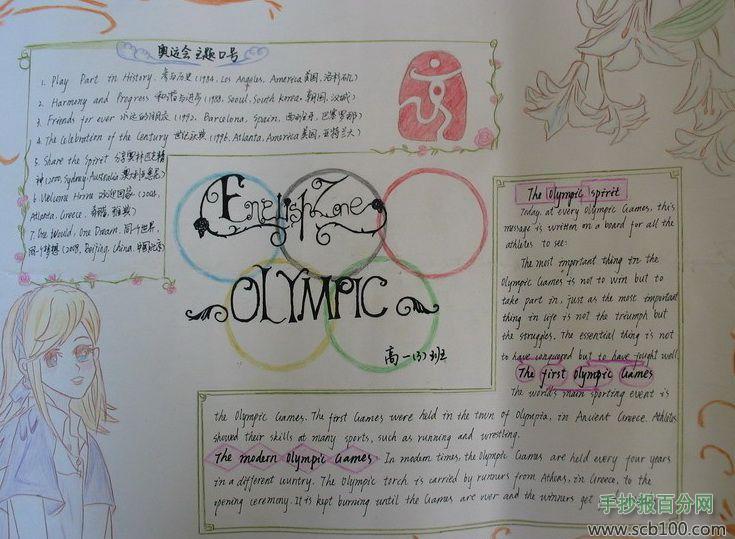 奥运会主题口号
1. Play Part in History. 参与历史 (1984, Los Angeles, America 美国, 洛杉矶)
2. Harmony and Progress 和谐与进步 (1988, Seoul, South Korea, 韩国, 汉城)
3. Friends for ever 永远的朋友 (1992, Barcelona, Spain, 西班牙, 巴塞罗那)
4. The Celebration of the Century 世纪庆典 (1996, Atlanta, America 美国, 亚特兰大)
5. Share the Spirit 分享奥林匹克精
神 (2000, Sydney, Australia
6. Welcome Home 欢迎回家 (2004,
Atlanta, Greece, 希腊, 雅典)
7. One World, One Dream, 同一个世界,
同一个梦想 (2008, Beijing, China, 中国北京)
English Zone
OLYMPIC
高一(3)班
The Olympic spirit
Today, at every Olympic Games, this
message is written on a board for all the
athletes to see:
The most important thing in the
Olympic Games is not to win but to
take part in, just as the most important
thing in life is not the triumph but
the struggles. The essential thing is not
to have conquered but to have fought well.
The first Olympic Games
The world's main sporting event is
the Olympic Games. The first Games were held in the town of Olympia, in Ancient Greece. Athletes
showed their skills at many sports, such as running and wrestling.
The modern Olympic Games In modern times, the Olympic Games are held every four years
in a different country. The Olympic torch is carried by runners from Athens, in Greece, to the
opening ceremony. It is kept burning until the Games are over and the winners get
手抄报百分网
www.scb100.com